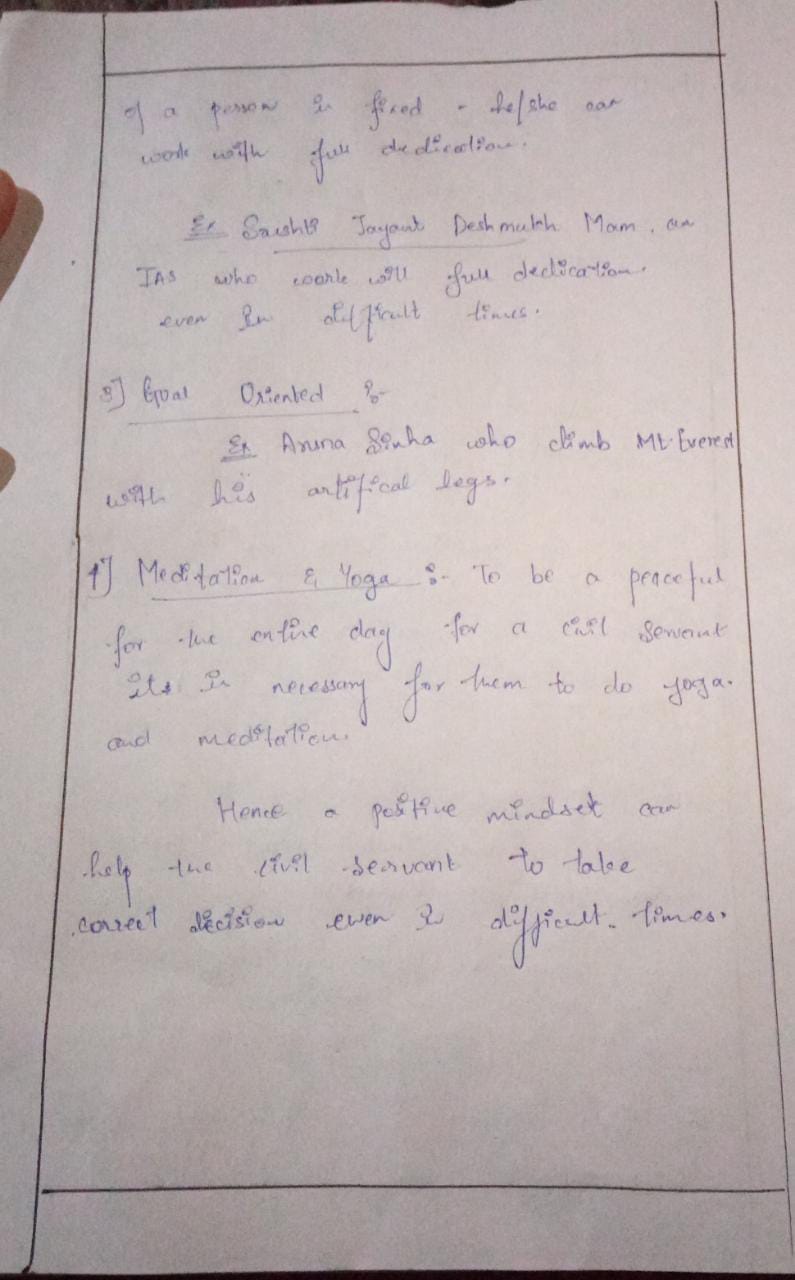 of a person is fixed - he/she can
work with full dedication.
Ex Srishti Jayant Deshmukh Mam, an
IAS who work will full dedication
even in difficult times.
3] Goal Oriented :-
Ex Aruna Sinha who climb Mt. Everest
with his artifical legs.
4] Meditation & Yoga :- To be a peaceful
for the entire day for a civil servant
its is necessary for them to do yoga.
and meditation.
Hence a positive mindset can
help the civil servant to take
correct decision even in difficult times.